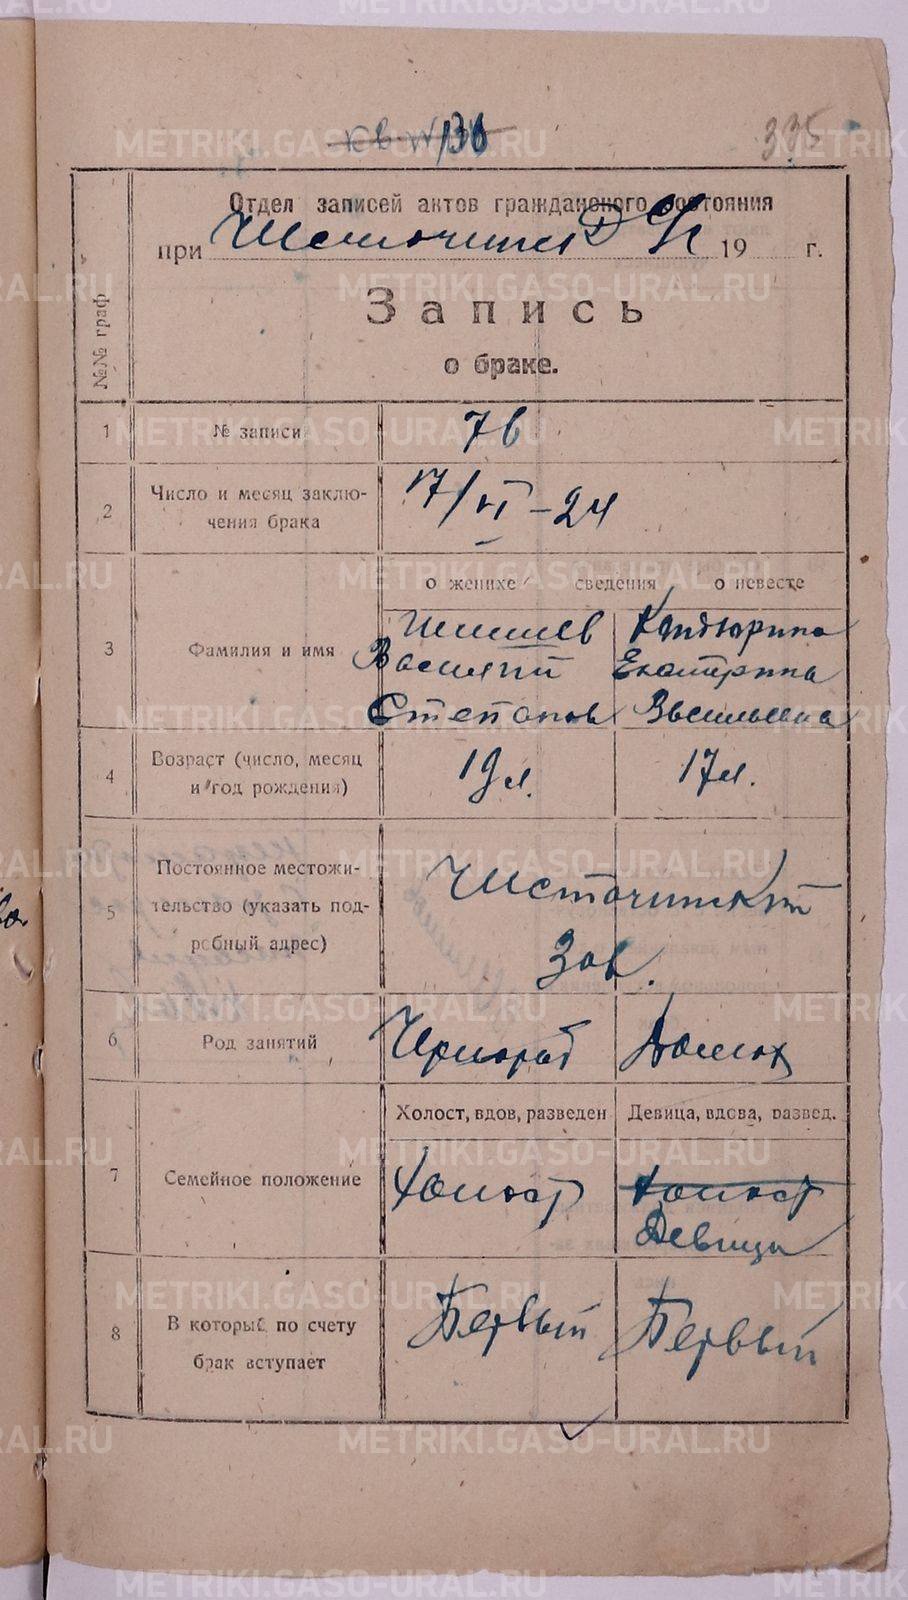 335
Отдел записей актов гражданского состояния
при 19 г.
Запись
о браке.
№№ граф
1 № записи 76
2 Число и месяц заключения брака 17/VI – 24
о женихе сведения о невесте
3 Фамилия и имя
Шишев Кайгюрина
Василий Екатерина
Степанов Васильевна
4 Возраст (число, месяц и год рождения) 19 л. 17 л.
5 Постоянное местожи-
тельство (указать под-
робный адрес)
Зав.
6 Род занятий Чернораб Домох
Холост, вдов, разведен Девица, вдова, развед.
7 Семейное положение Холост Холост
Девица
8 В который по счету
брак вступает
Первый Первый
METRIKI.GASO-URAL.RU